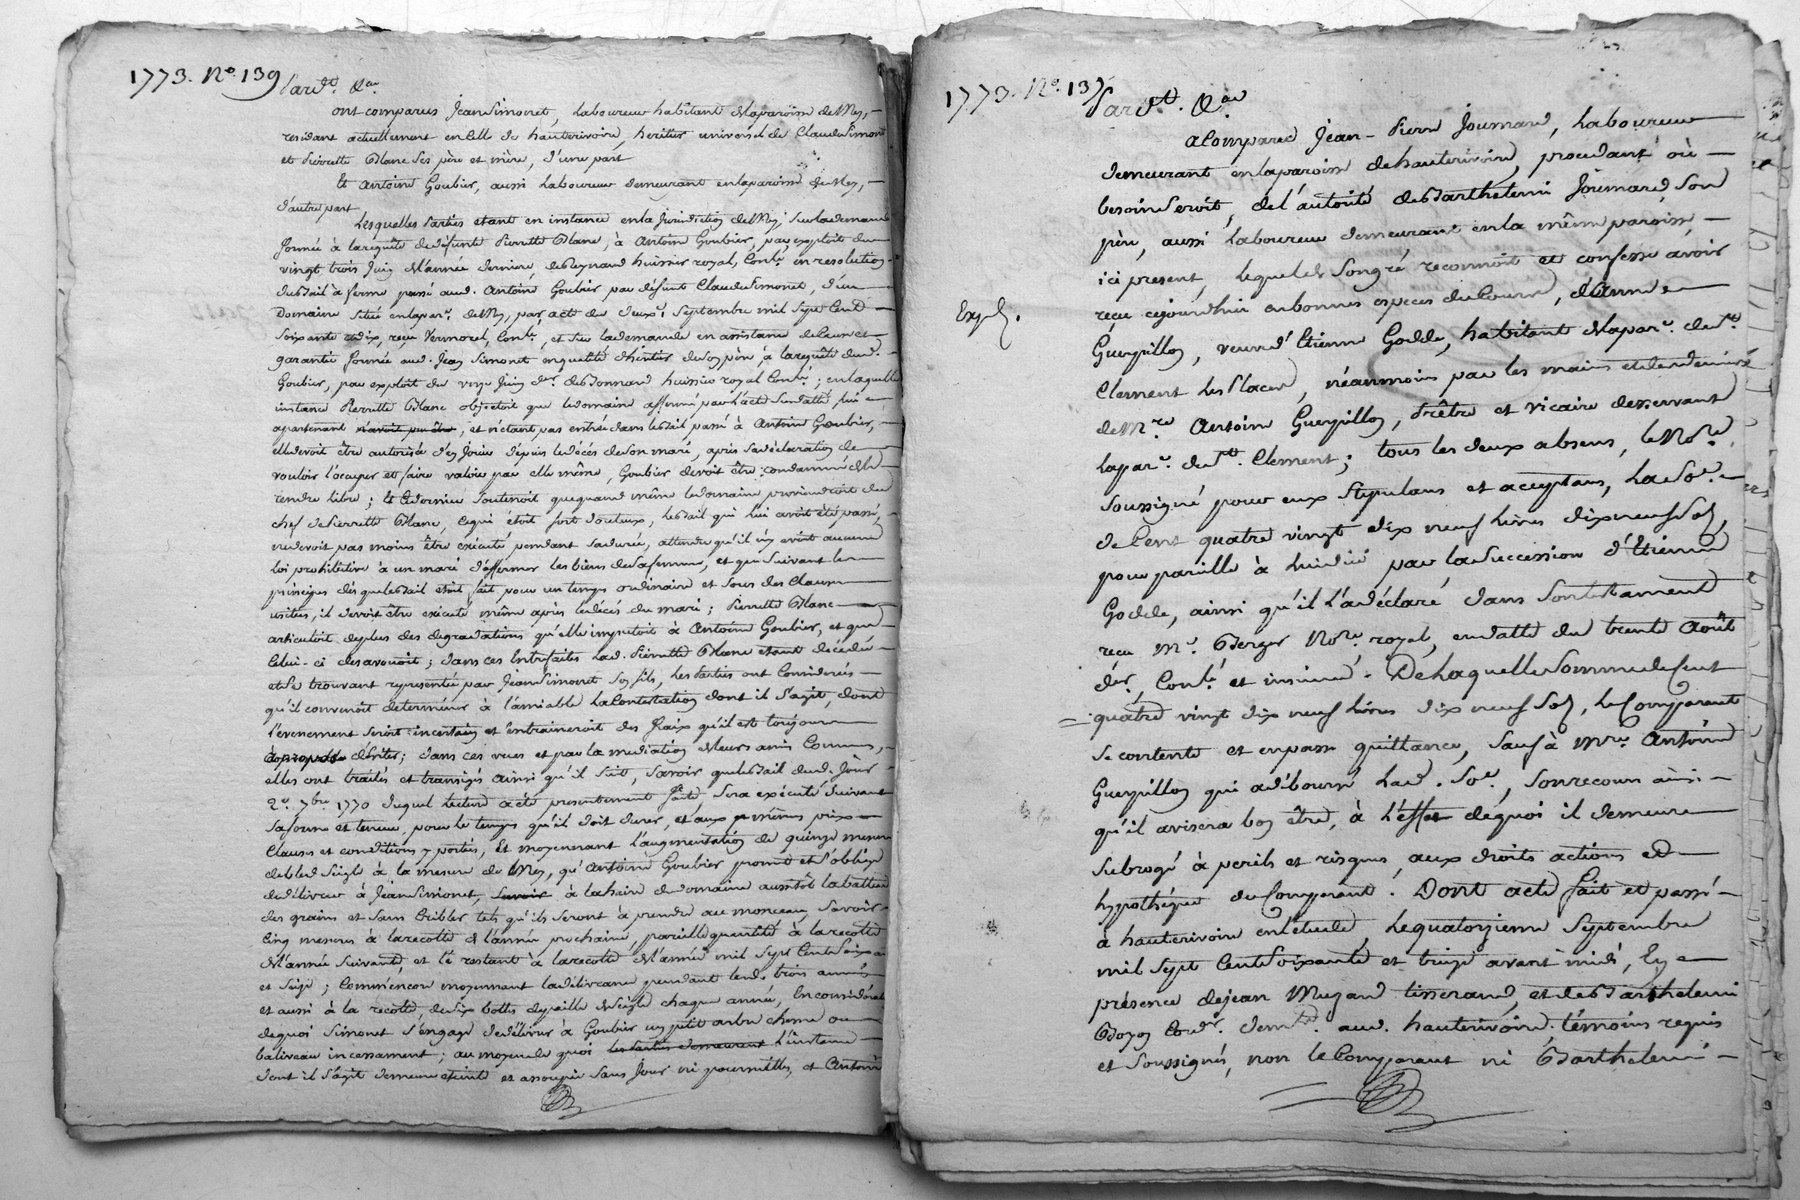 1773. No. 139
Pardt. &a.
ont comparus Jean Simonet, Laboureur habitant de la paroisse de Néz,
residant actuellement en celle de hauterivoire, heritier universel de Claude Simonet
et Pierrette Blanc ses père et mère, d'une part
Et Antoine Goubier, aussi Laboureur demeurant en la paroisse de Néz,
d'autre part
Lesquelles Parties etant en instance en la Jurisdiction de Néz; sur la demande
formée à la requête de défunte Pierrette Blanc, à Antoine Goubier, par exploit du
vingt trois Juin de l'année derniere, de Reynaud huissier royal, Conlé. en resolution
du bail à ferme passé aud. Antoine Goubier par défunt Claude Simonet, d'un
Domaine situé en la par. de Néz, par acte du deuxe. Septembre mil sept Cent
Soixante et dix, reçu Vermorel, Conlé, et sur la demande en assistance de cause et
garantie formée aud. Jean Simonet en qualité d'heritier de son père, à la requête dud.
Goubier, par exploit du Juin der. de Bonnand huissier royal Conlé; en laquelle
instance Pierrette Blanc objectoit que le domaine affermé par l'acte susdatté, lui
apartenant, et n'etant pas entrée dans le bail passé à Antoine Goubier,
elle devoit être autorisée d'en Jouir depuis le décés de son mari, après sa déclaration de
vouloir l'ocuper et faire valoir par elle même, Goubier devoit être condamné de le
rendre libre; Et Ce dernier soutenoit que quand même le domaine proviendroit du
chef de Pierrette Blanc, Ce qui étoit fort douteux, le bail qui lui avoit été passé,
ne devoit pas moins être exécuté pendant sa durée, attendu qu'il n'y avoit aucune
Loi prohibitive à un mari d'affermer les biens de sa femme, et que suivant les
principes dés que le bail etoit fait pour un temps ordinaire et sous des clauses
usitées, il devoit être exécuté même après le décés du mari; Pierrette Blanc
articuloit de plus des degradations qu'elle imputoit à Antoine Goubier, et que
Celui-ci desavouoit; dans ces Entrefaites lad. Pierrette Blanc etant décedée
et se trouvant representée par Jean Simonet son fils, les Parties ont Considéré
qu'il convenoit de terminer à l'amiable la Contestation dont il s'agit, dont
l'évenement seroit incertain et entraineroit des fraix qu'il est toujours
à propos d'éviter; dans ces vues et par la mediation de leurs amis Communs,
elles ont traités et transigés ainsi qu'il suit, Savoir que le bail dud. Jour
2e. 7bre 1770 duquel lecture a été presentement faite, sera exécuté suivant
sa forme et teneur, pour le temps qu'il doit durer, et aux mêmes prix
Clauses et conditions y portées, Et moyenant l'augmentation de quinze mesures
de bled Seigle à la mesure de Néz, qu'Antoine Goubier promet et s'oblige
de délivrer à Jean Simonet, Savoir à la haire du domaine aussitôt la batture
des grains et sans cribler tels qu'ils seront à prendre au monceau, Savoir
Cinq mesures à la recolte de l'année prochaine, pareille quantité à la recolte
de l'année suivante, et le restant à la recolte de l'année mil sept Cent Soixante
et seize; Commencera moyenant la délivrance pendant lesd. trois années
et aussi à la recolte, de six bottes de paille de Seigle chaque année, En considération
de quoi Simonet s'engage de délivrer à Goubier un petit arbre chesne ou
baliveau incessament; au moyen de quoi les Parties demeurent l'instance
dont il s'agit demeure eteinte et assoupie sans Jour ni poursuittes, et Antoine
1773. No. 137
Pardt. &a.
a Comparu Jean-Pierre Joumard, Laboureur
demeurant en la paroisse de hauterivoire, procedant où
besoin seroit, de l'autorité de Barthelemi Joumard son
père, aussi Laboureur demeurant en la même paroisse
ici présent, lequel de son gré reconnoit et confesse avoir
reçu cejourd'hui en bonnes especes du Cours, d'Anne
Guerpillon, veuve d'Etienne Godde, habitante de la par. de St.
Clement les Places, néanmoins par les mains et deniers
de Mre Antoine Guerpillon, Prêtre et vicaire desservant
la par. de St. Clement; tous les deux absens, le Nore.
soussigné pour eux stipulant et acceptant, la So.
de Cent quatre vingt dix neuf Livres dix neuf Sols
pour pareille à lui düe par la succession d'Etienne
Godde, ainsi qu'il l'a déclaré dans son testament
reçu Me. Berger Nore. royal, en datte du trente Août
der., Conlé et insinué. De laquelle somme de Cent
quatre vingt dix neuf livres dix neuf Sols, le Comparant
se contente et en passe quittance, sauf à Mre. Antoine
Guerpillon qui a débourcé lad. So., son recours ainsi
qu'il avisera bon être, à l'effet de quoi il demeure
subrogé à perils et risques, aux droits actions et
hypothéque du Comparant. Dont acte fait et passé
à hauterivoire en l'étude, le quatorzieme Septembre
mil sept Cent soixante et treize avant midi, En
présence de jean Muzard tisserand, et de Barthelemi
Boyon Cordr. demts. aud. hauterivoire témoins requis
et soussignés, non le Comparant ni Barthelemi
Exped.